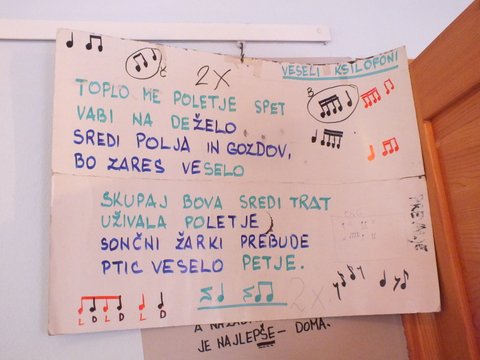 VESELI KSILOFONI
2X
TOPLO ME POLETJE SPET
VABI NA DEŽELO
SREDI POLJA IN GOZDOV,
BO ZARES VESELO
SKUPAJ BOVA SREDI TRAT
UŽIVALA POLETJE
SONČNI ŽARKI PREBUDE
PTIC VESELO PETJE.
2X
L D L D L D
JE NAJLEPŠE - DOMA.